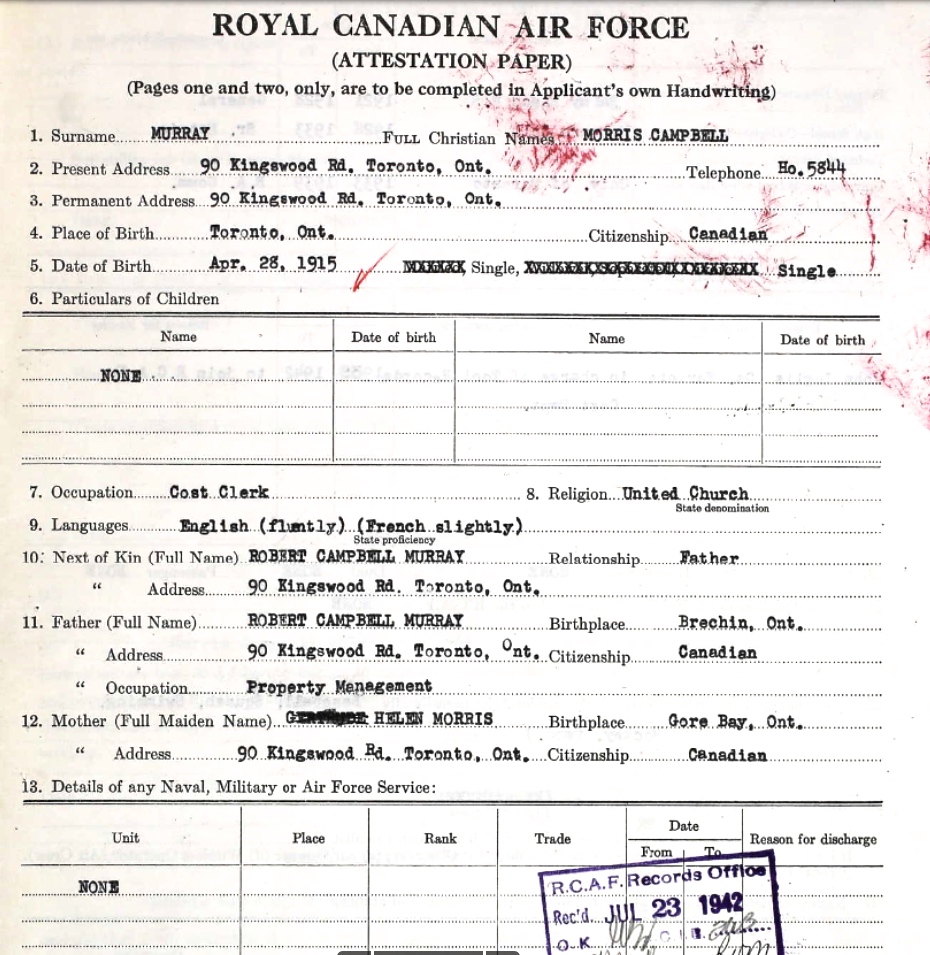 ROYAL CANADIAN AIR FORCE
(ATTESTATION PAPER)
(Pages one and two, only, are to be completed in Applicant's own Handwriting)
1. Surname MURRAY FULL Christian Names MORRIS CAMPBELL
2. Present Address 90 Kingswood Rd. Toronto, Ont. Telephone Ho.5844
3. Permanent Address 90 Kingswood Rd. Toronto, Ont.
4. Place of Birth Toronto, Ont. Citizenship Canadian
5. Date of Birth Apr. 28, 1915 Single, Single
6. Particulars of Children
Name Date of birth Name Date of birth
NONE
7. Occupation Cost Clerk 8. Religion United Church
State denomination
9. Languages English (fluntly) (French slightly)
State proficiency
10. Next of Kin (Full Name) ROBERT CAMPBELL MURRAY Relationship Father
" Address 90 Kingswood Rd. Toronto, Ont.
11. Father (Full Name) ROBERT CAMPBELL MURRAY Birthplace Brechin, Ont.
" Address 90 Kingswood Rd. Toronto, Ont. Citizenship Canadian
" Occupation Property Management
12. Mother (Full Maiden Name) HELEN MORRIS Birthplace Gore Bay, Ont.
" Address 90 Kingswood Rd. Toronto, Ont. Citizenship Canadian
13. Details of any Naval, Military or Air Force Service:
Unit Place Rank Trade Date Reason for discharge
From To
NONE
R.C.A.F. Records Office
Rec'd. JUL 23 1942
O.K